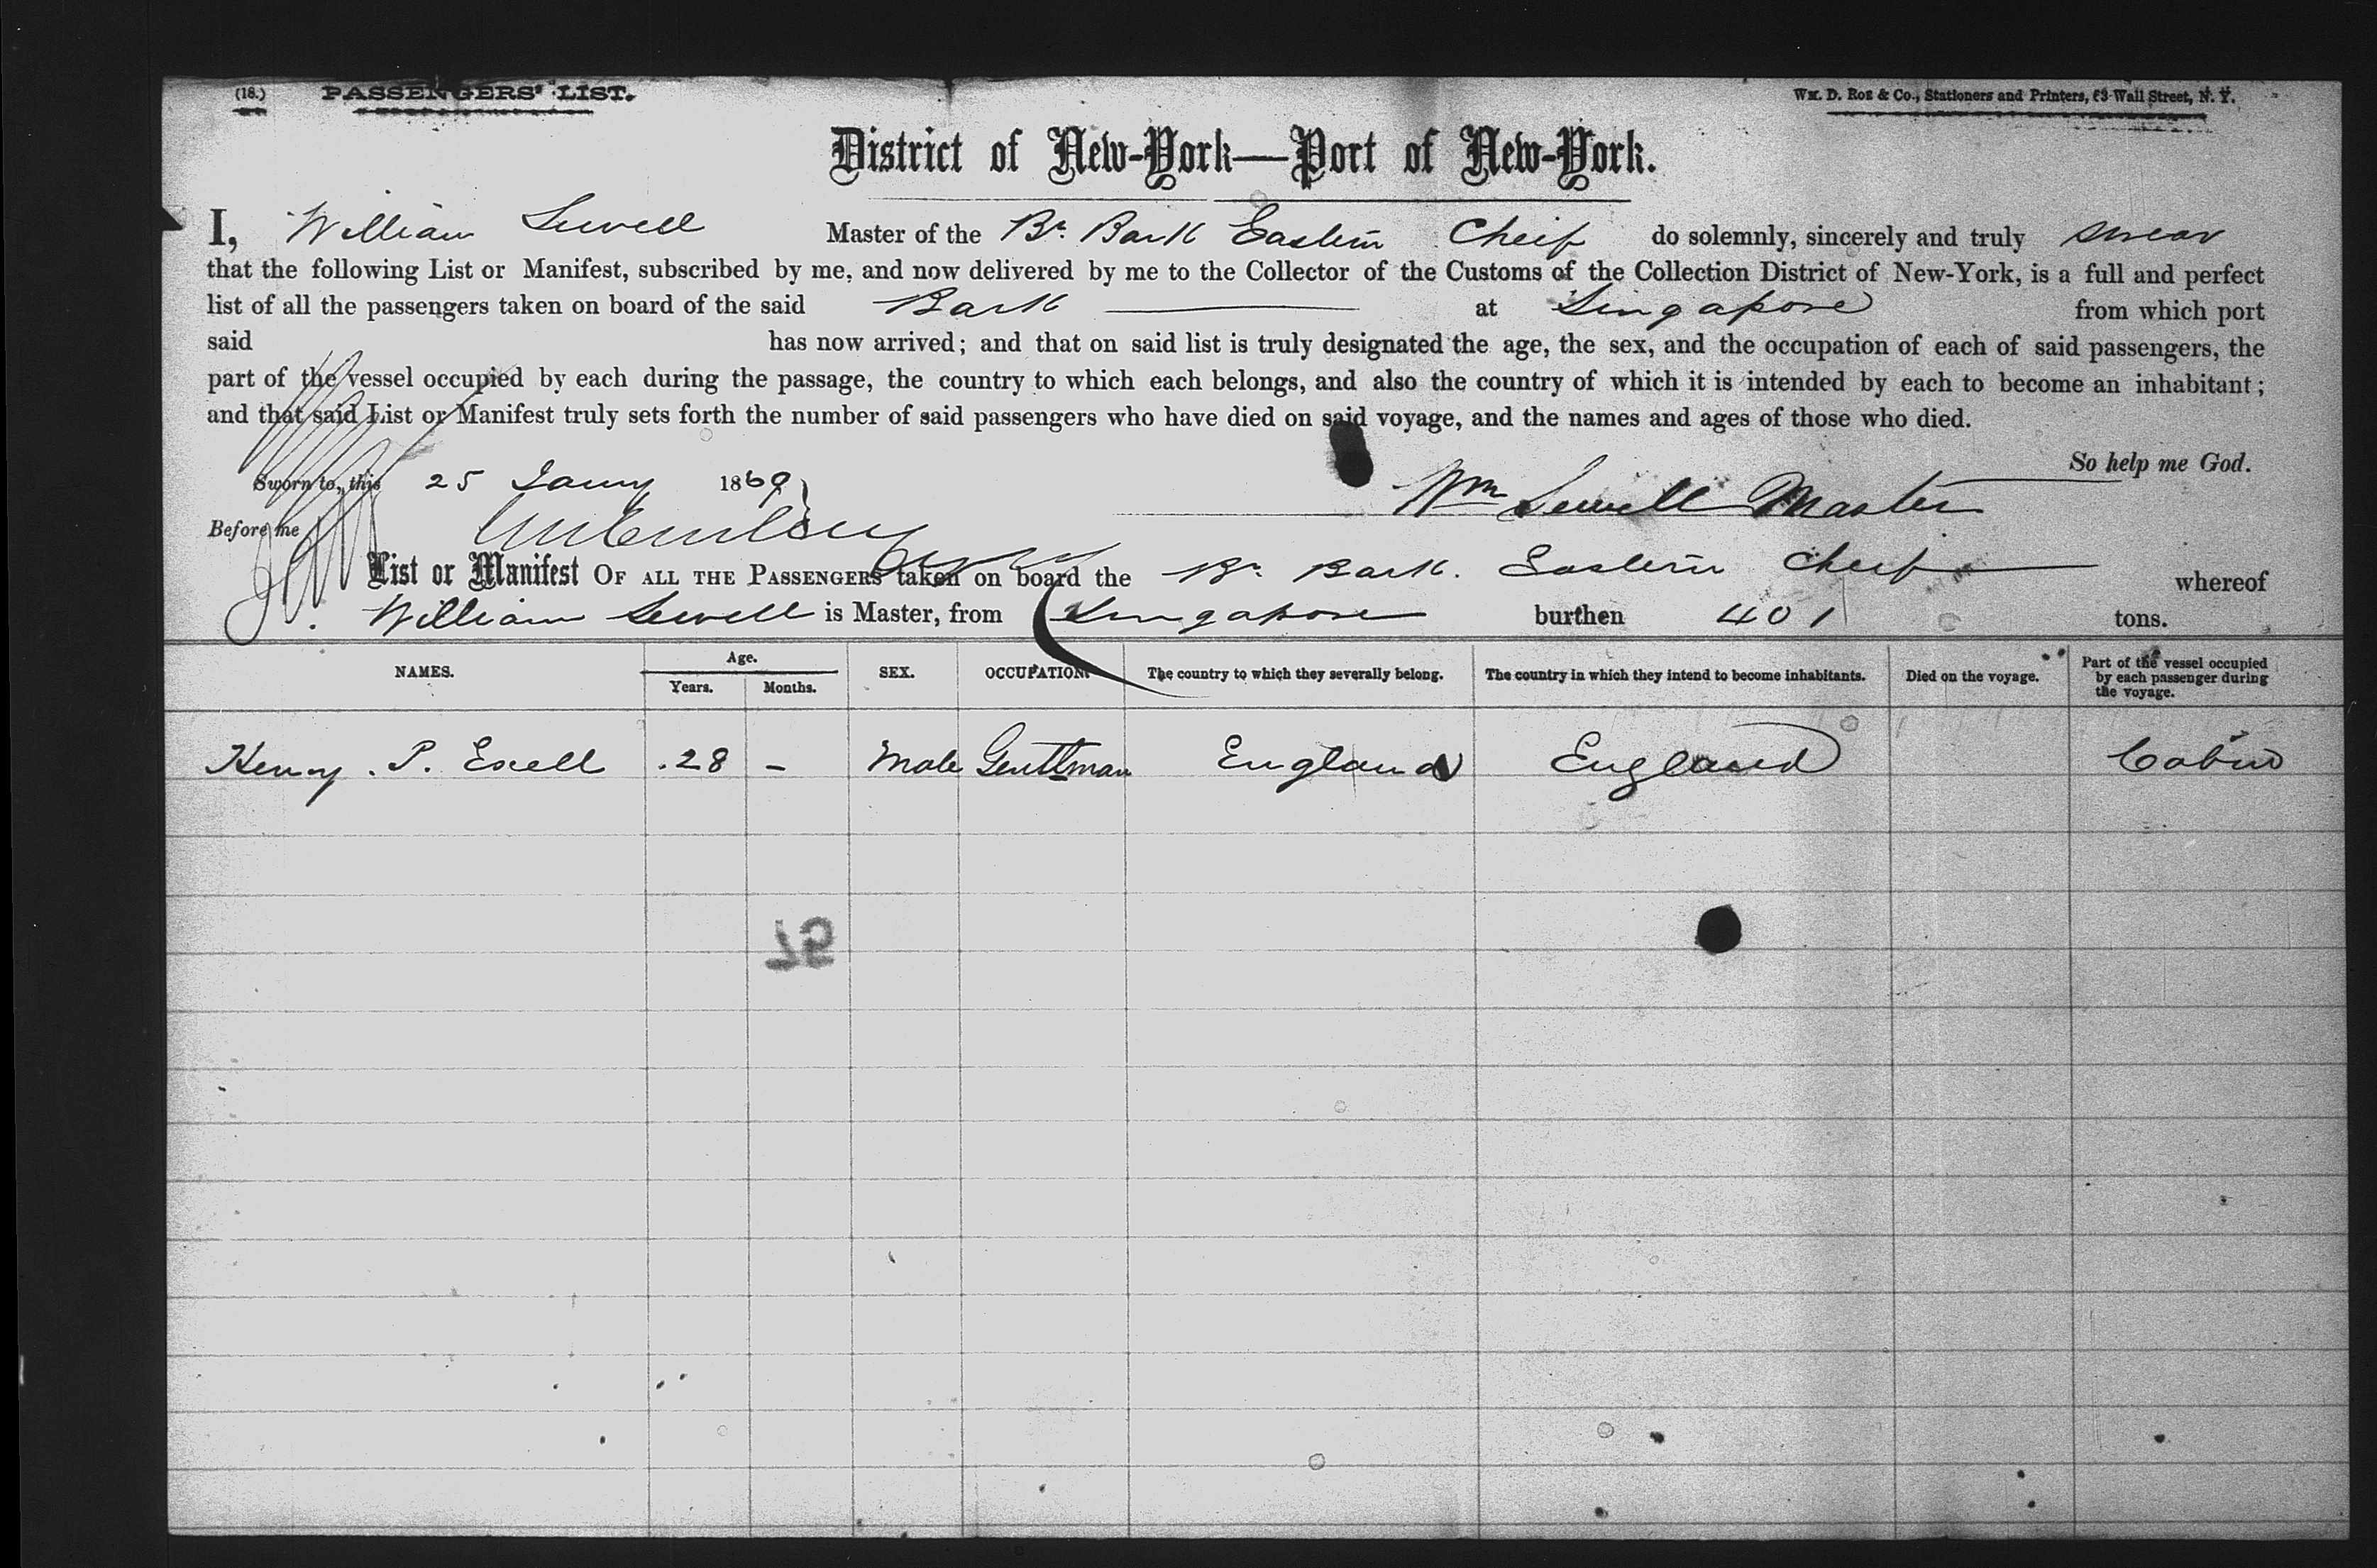 (18.) PASSENGERS' LIST. Wm. D. Roe & Co., Stationers and Printers, 63 Wall Street, N. Y.
District of New-York—Port of New-York.
I, William Sewell Master of the Br. Bark Eastern Cheif do solemnly, sincerely and truly swear
that the following List or Manifest, subscribed by me, and now delivered by me to the Collector of the Customs of the Collection District of New-York, is a full and perfect
list of all the passengers taken on board of the said Bark at Singapore from which port
said has now arrived; and that on said list is truly designated the age, the sex, and the occupation of each of said passengers, the
part of the vessel occupied by each during the passage, the country to which each belongs, and also the country of which it is intended by each to become an inhabitant;
and that said List or Manifest truly sets forth the number of said passengers who have died on said voyage, and the names and ages of those who died.
So help me God.
Sworn to, this 25 Jany 1869
Wm Sewell Master
Before me
List or Manifest OF ALL THE PASSENGERS taken on board the Br. Bark. Eastern Cheif whereof
William Sewell is Master, from Singapore burthen 401 tons.
NAMES. Age. Years. Months. SEX. OCCUPATION. The country to which they severally belong. The country in which they intend to become inhabitants. Died on the voyage. Part of the vessel occupied by each passenger during the voyage.
Henry. P. Exell 28 - Male Genttman England England Cabin